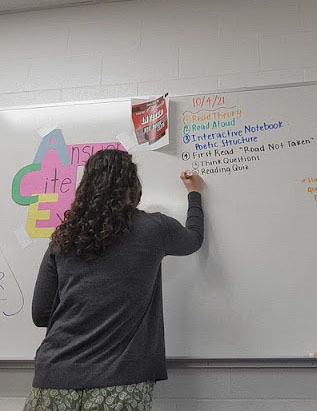 10/4/21
① Read Theory
② Read Aloud
③ Interactive Notebook
Poetic Structure
④ First Read "Road Not Taken"
① Think Questions
② Reading Quiz
Ans
Cite
E